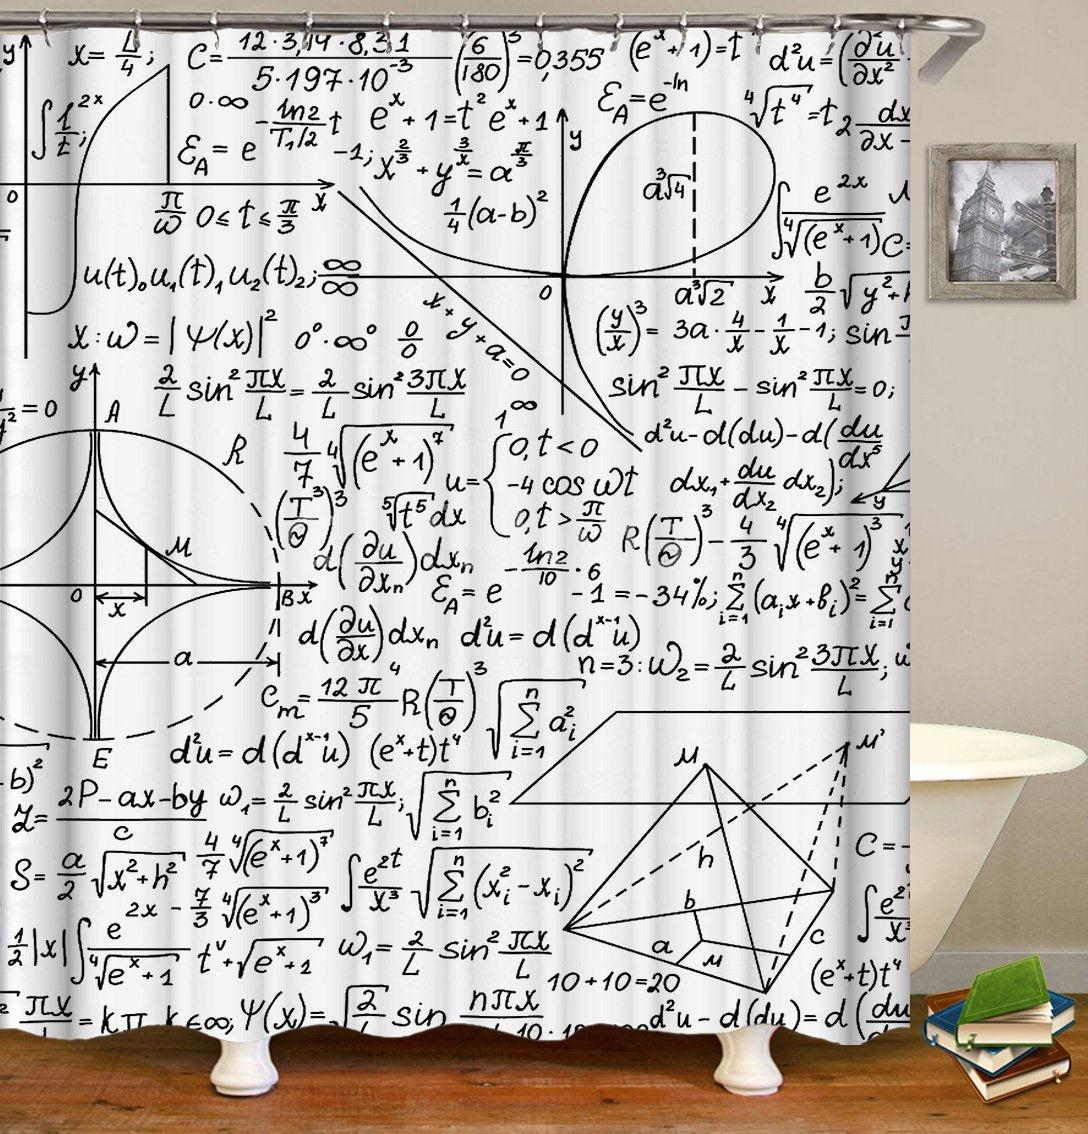 y x = L/4; C = 12·3,14·8,31 / 5·197·10⁻³ (6/180)³ = 0,355 (eˣ+1) = t d²u = (∂²u/∂x²
∫ 1/t^2x; 0·∞ ℰ_A = e^-ln2/T₁/₂ t -1; eˣ+1 = t² eˣ+1 ℰ_A = e^-ln ⁴√t⁴ = t₂ dx/∂x -
x^2/3 + y^3/x = a^π/3 y a³√4
0 π/ω 0 ≤ t ≤ π/3 x 1/4(a-b)² ∫ e^2x / ⁴√(eˣ+1) C=
u(t)₀ u₁(t)₁ u₂(t)₂; ∞/∞ 0 a³√2 x b/2 √y²+h
x : ω = |Ψ(x)|² 0°·∞° 0/0 x+y+a=0 (y/x)³ = 3a·4/x - 1/x -1; sin
y 2/L sin² πx/L = 2/L sin² 3πx/L sin² πx/L - sin² πx/L = 0;
y² = 0 A 1^∞
R 4/7 ⁴√(eˣ+1)⁷ u = { 0, t < 0 d²u - d(du) - d(du/dx⁵
-4 cos ωt dx₁ + du/dx₂ dx₂); y
(T³/Θ)³ ⁵√t⁵ dx 0, t > π/ω R(T/Θ)³ - 4/3 ⁴√(eˣ+1)³
M d(∂u/∂xₙ)dxₙ ℰ_A = e^-ln2/10 ·6 -1 = -34%; ⁿΣᵢ₌₁ (aᵢx+bᵢ)² = ⁿΣᵢ₌₁
0 x B x
d(∂u/∂x)dxₙ d²u = d(d^x-1u)
a n=3: ω₂ = 2/L sin² 3πx/L;
C_m = 12π⁴/5 R(T/Θ)³ √ⁿΣᵢ₌₁ aᵢ²
E d²u = d(d^x-1u) (eˣ+t)t⁴ M M'
b)²
Z = 2P-ax-by / c ω₁ = 2/L sin² πx/L; √ⁿΣᵢ₌₁ bᵢ²
S = a/2 √x²+h² 4/7 ⁴√(eˣ+1)⁷ ∫ e^2t/x³ √ⁿΣᵢ₌₁ (xᵢ²-xᵢ)² h C = -
1/2|x| ∫ e^2x / ⁴√eˣ+1 - 7/3 ⁴√(eˣ+1)³ b ∫ e²/x³
t^v + √eˣ+2 ω₁ = 2/L sin² πx/L a M c
10+10=20 (eˣ+t)t⁴
πx/L = kπ k∈∞; Ψ(x) = √2/L sin nπx d²u - d(du) = d(du